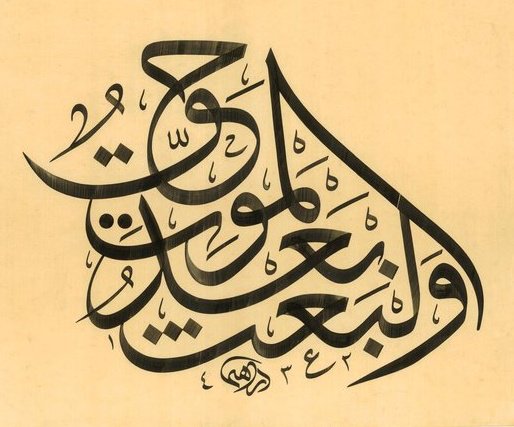 وَالْبَعْثُ بَعْدَ الْمَوْتِ حَقٌّ